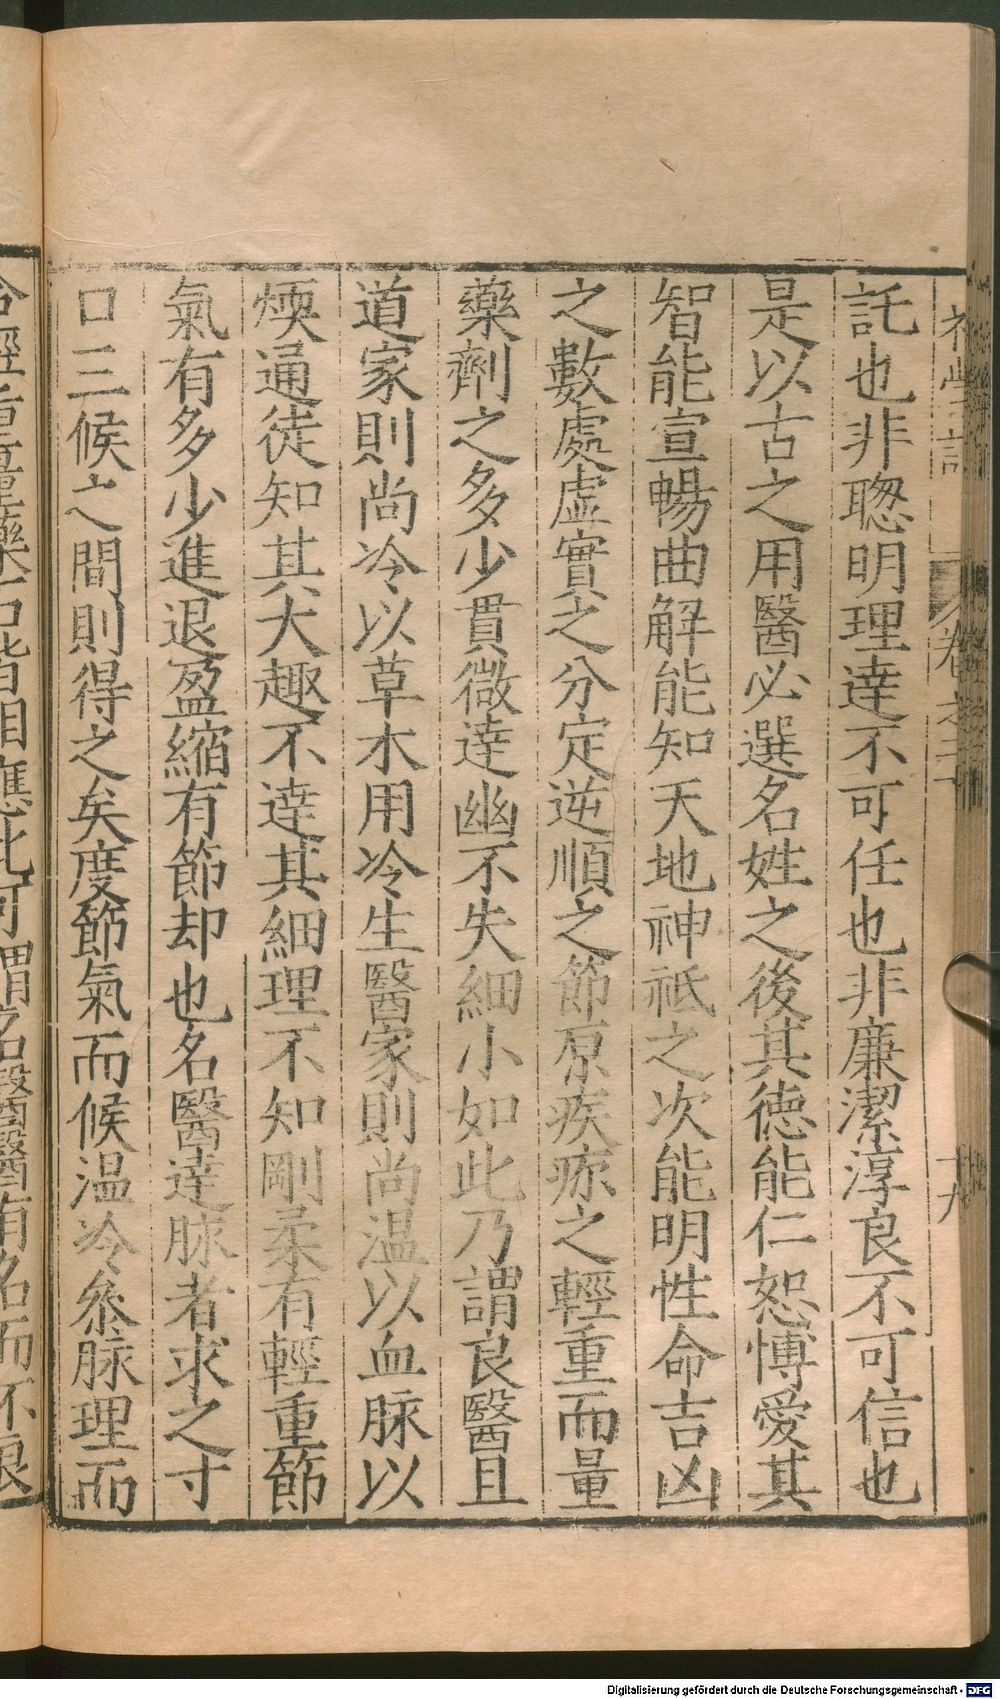 託也非聦明理達不可任也非廉潔淳良不可信也
是以古之用醫必選名姓之後其德能仁恕愽愛其
智能宣暢曲解能知天地神祗之次能明性命吉凶
之數處虛實之分定逆順之節原疾疹之輕重而量
藥劑之多少貫微達幽不失細小如此乃謂良醫且
道家則尚冷以草木用冷生醫家則尚溫以血脉以
煗通徒知其大趣不達其細理不知剛柔有輕重節
氣有多少進退盈縮有節却也名醫達脉者求之寸
口三候之間則得之矣度節氣而候溫冷叅脉理而
合輕重量藥石皆相應此可謂名醫醫有名而不良
卷之二十
十九
Digitalisierung gefördert durch die Deutsche Forschungsgemeinschaft - DFG